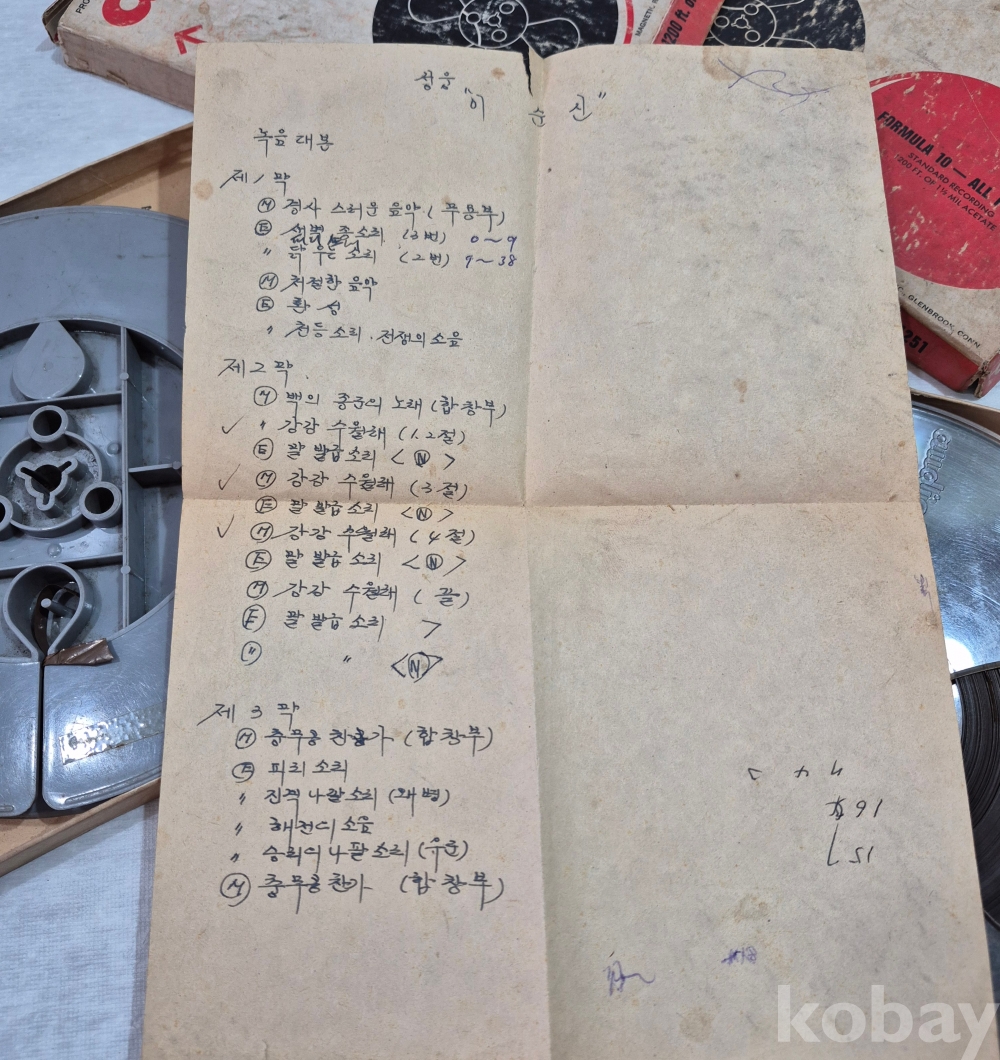 1200 ft. of
FORMULA 10 — ALL
STANDARD RECORDING
1200 FT. OF 1½ MIL ACETATE
GLENBROOK, CONN
251
성웅
"이 순 신"
녹음 대본
제 1 막
Ⓜ 경사 스러운 음악 (무용부)
Ⓔ 새벽 종소리 (3번) 0~9
〃 닭 우는 소리 (2번) 9~38
Ⓜ 처절한 음악
Ⓔ 함성
〃 천둥소리. 전쟁의 소음
제 2 막
Ⓜ 백의 종군의 노래 (합창부)
✓ 〃 강강 수월래 (1.2절)
Ⓔ 말 발급소리 < Ⓝ >
✓ Ⓜ 강강 수월래 (3절)
Ⓔ 말 발급소리 < Ⓝ >
✓ Ⓜ 강강 수월래 (4절)
Ⓔ 말 발급소리 < Ⓝ >
Ⓜ 강강 수월래 (끝)
Ⓔ 말 발급소리 >
〃 〃 <Ⓝ>
제 3 막
Ⓜ 충무공 찬가 (합창부)
Ⓔ 피리 소리
〃 진격 나팔소리 (왜병)
〃 해전의 소음
〃 승리의 나팔소리 (우군)
Ⓜ 충무공찬가 (합창부)
kobay